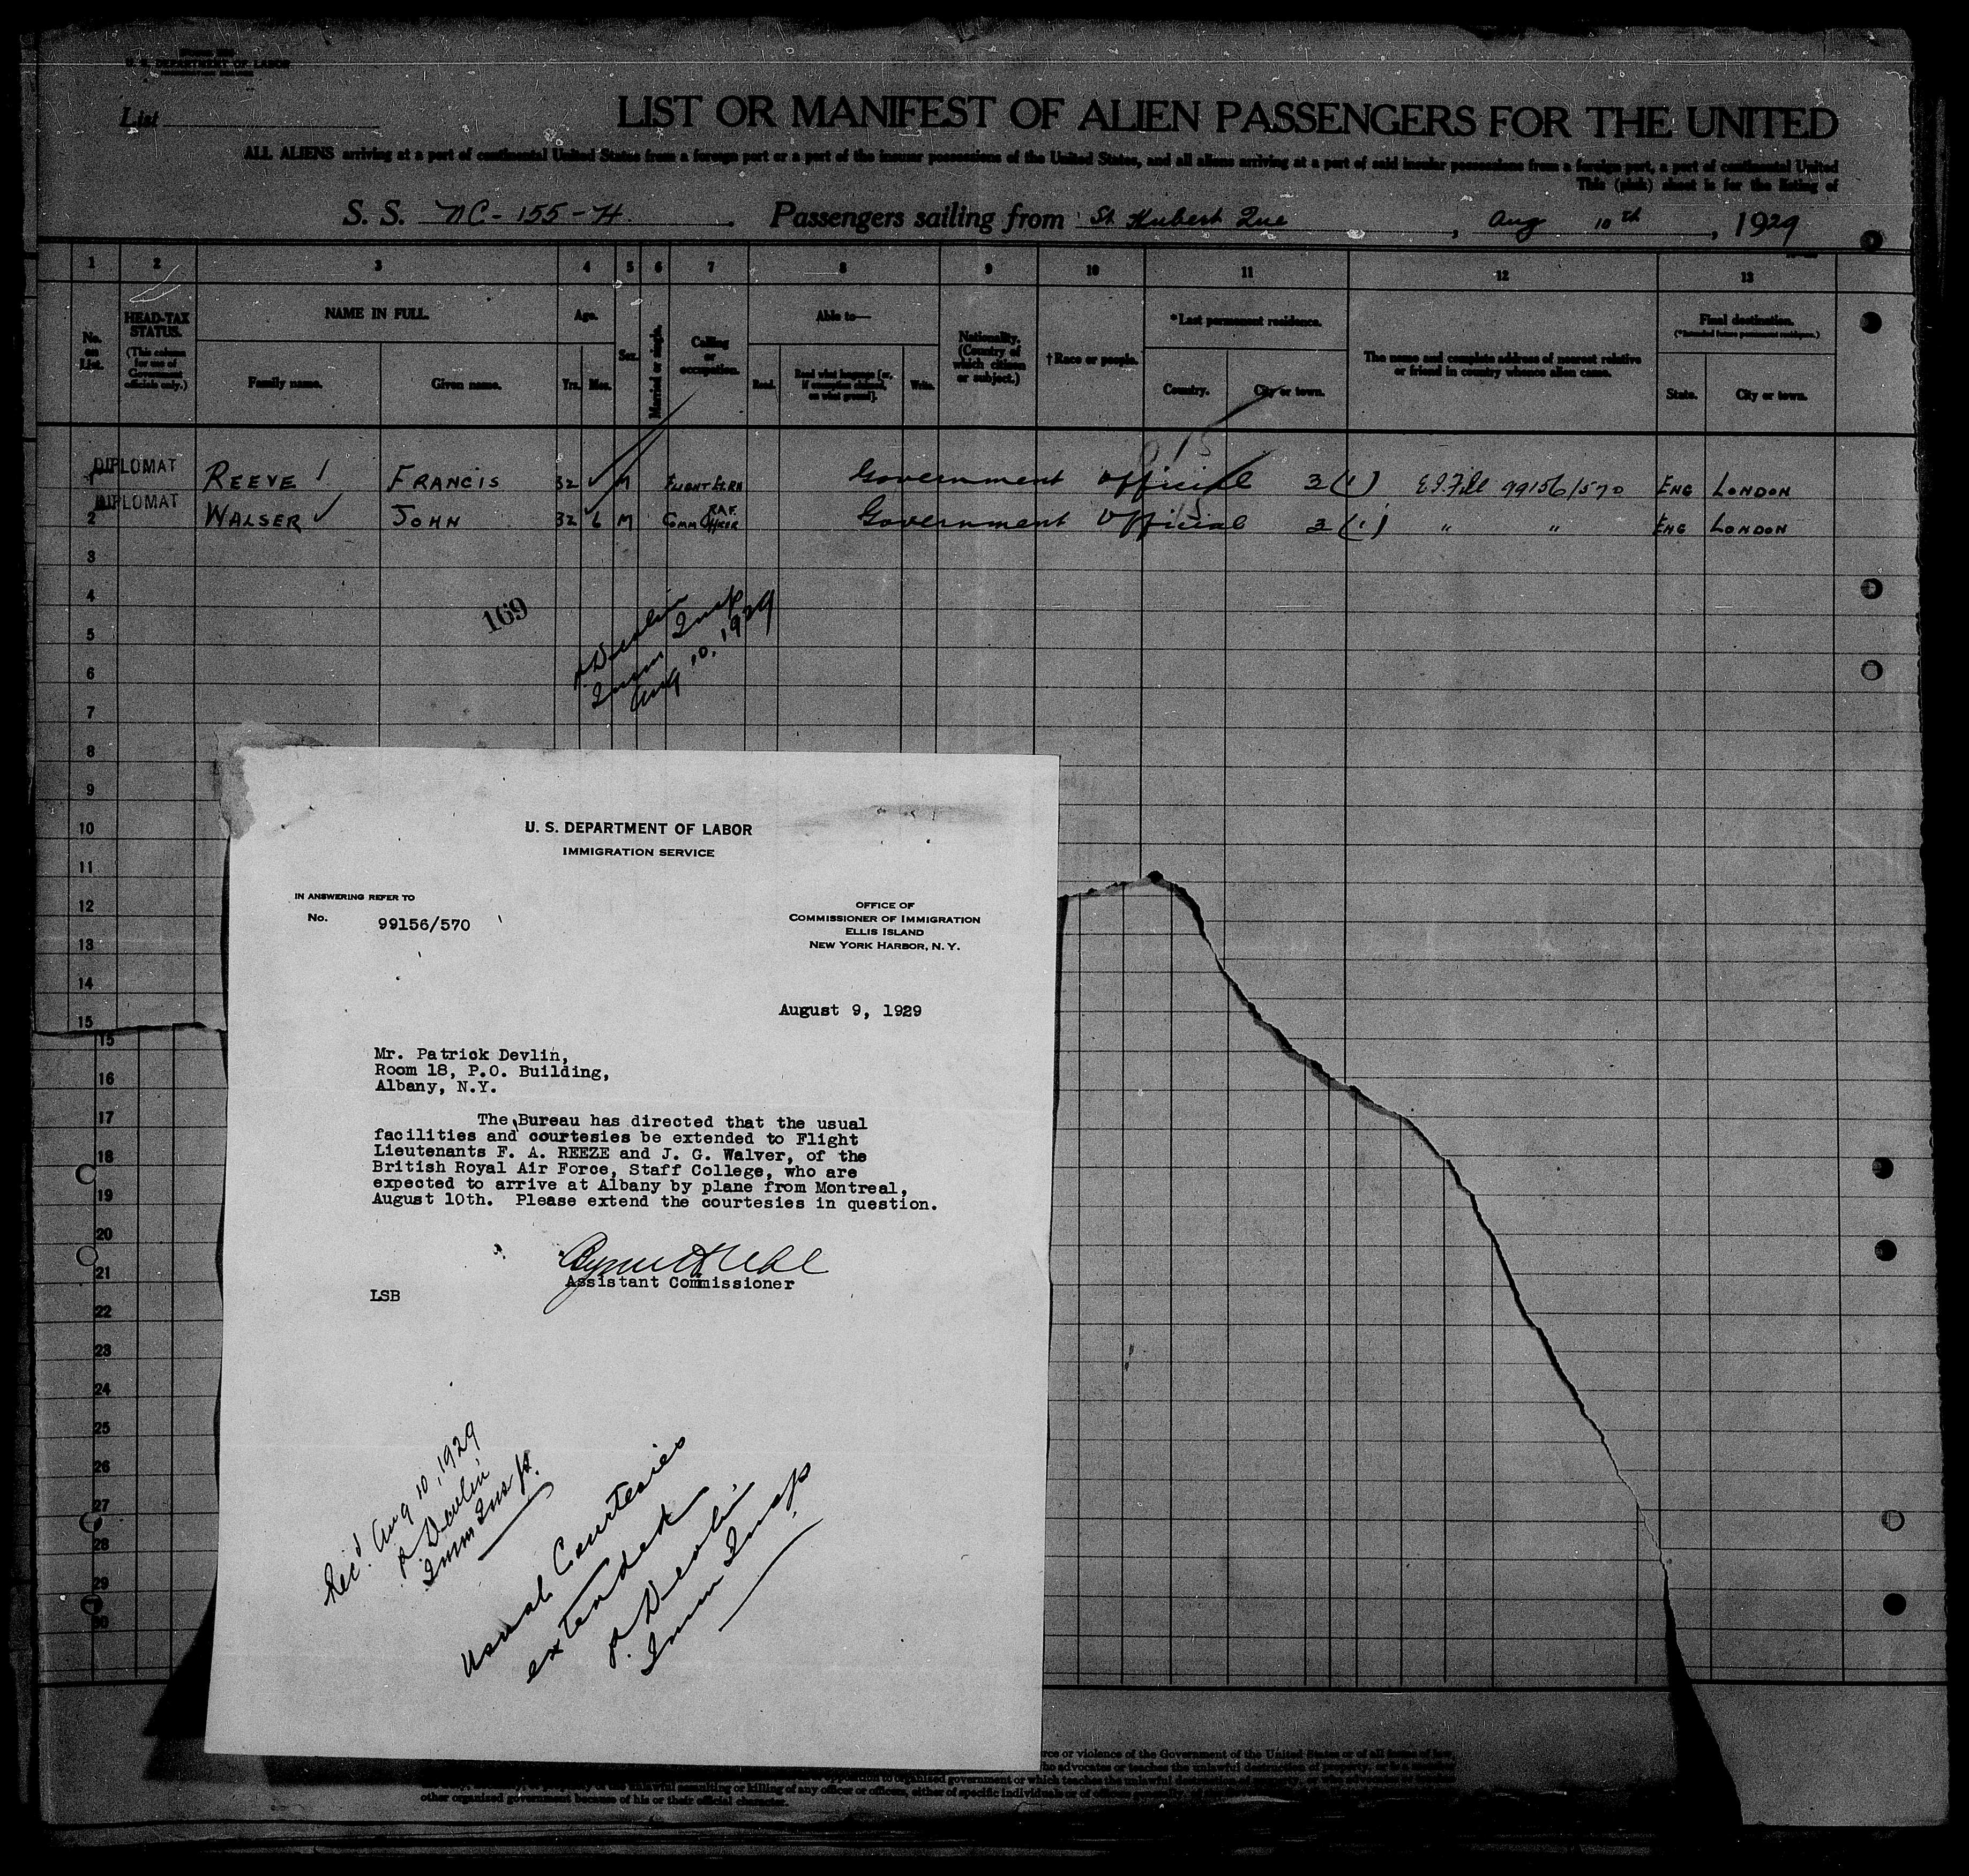 U. S. DEPARTMENT OF LABOR
List
LIST OR MANIFEST OF ALIEN PASSENGERS FOR THE UNITED
ALL ALIENS arriving at a port of continental United States from a foreign port or a port of the insular possessions of the United States, and all aliens arriving at a port of said insular possessions from a foreign port, a port of continental United
This (pink) sheet is for the listing of
S. S. NC-155-H. Passengers sailing from St Hubert Que, Aug 10th, 1929
1 2 3 4 5 6 7 8 9 10 11 12 13
No. on List.
HEAD-TAX STATUS.
(This column for use of Government officials only.)
NAME IN FULL.
Family name. Given name.
Age.
Yrs. Mos.
Sex.
Married or single.
Calling or occupation.
Able to—
Read. Read what language [or, if exemption claimed, on what ground]. Write.
Nationality. (Country of which citizen or subject.)
†Race or people.
*Last permanent residence.
Country. City or town.
The name and complete address of nearest relative or friend in country whence alien came.
Final destination.
(*Intended future permanent residence.)
State. City or town.
1 DIPLOMAT REEVE FRANCIS 32 M Government Official 3(1) 99156/570 ENG LONDON
2 DIPLOMAT WALSER JOHN 32 6 M COMM R.A.F. OFFICER Government Official 3(1) " " ENG LONDON
3
4
5
6
7
8
9
10
11
12
13
14
15
169
P Devlin
Imm Insp
Aug 10, 1929
15
16
17
18
19
20
21
22
23
24
25
26
27
28
29
30
U. S. DEPARTMENT OF LABOR
IMMIGRATION SERVICE
IN ANSWERING REFER TO
No. 99156/570
OFFICE OF
COMMISSIONER OF IMMIGRATION
ELLIS ISLAND
NEW YORK HARBOR, N. Y.
August 9, 1929
Mr. Patrick Devlin,
Room 18, P.O. Building,
Albany, N.Y.
The Bureau has directed that the usual
facilities and courtesies be extended to Flight
Lieutenants F. A. REEZE and J. G. Walver, of the
British Royal Air Force, Staff College, who are
expected to arrive at Albany by plane from Montreal,
August 10th. Please extend the courtesies in question.
Assistant Commissioner
LSB
Rec'd. Aug 10, 1929
P Devlin
Imm Insp.
Usual Courtesies
extended
P. Devlin
Imm Insp
or violence of the Government of the United States or of all forms of law,
advocates or teaches the unlawful destruction of property,
organized government or which teaches the unlawful
unlawful assaulting or killing of any officer or officers, either of specific individuals or of
other organized government because of his or their official character.